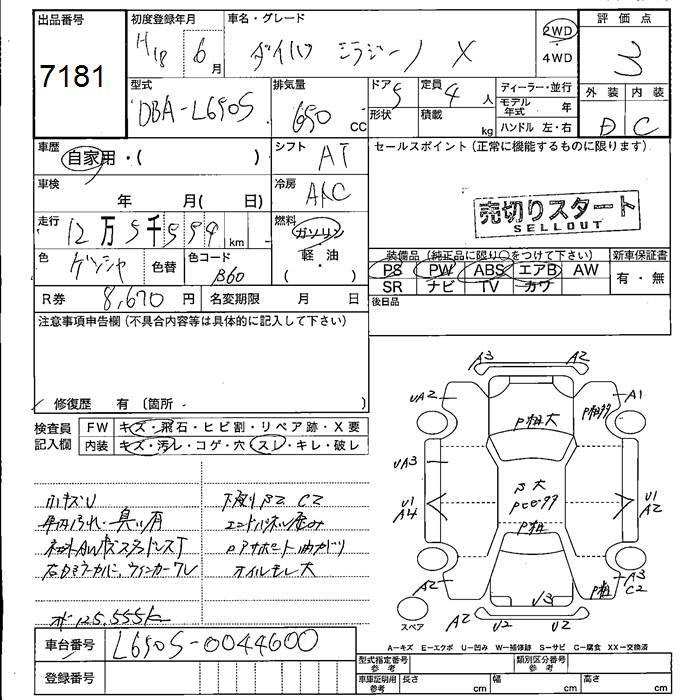 出品番号 初度登録年月 車名・グレード 評価点
7181
H18年 6月 ダイハツ ミラジーノ X
2WD
・
4WD
3
型式 排気量 ドア 定員 ディーラー・並行
DBA-L650S 650cc 5 4人
モデル年式 年
形状 積載 kg ハンドル 左・右
外装 内装
D C
車歴 自家用・( ) シフト AT
セールスポイント(正常に機能するものに限ります)
車検 年 月( 日) 冷房 AAC
売切りスタート
SELLOUT
走行 12万5千559km 燃料 ガソリン
軽・油
( )
色 ゲンシャ 色替 色コード B60
装備品(純正品に限り○をつけて下さい) 新車保証書
PS PW ABS エアB AW 有・無
SR ナビ TV カワ
R券 8,670円 名変期限 月 日
後日品
注意事項申告欄(不具合内容等は具体的に記入して下さい)
修復歴 有(箇所 )
検査員記入欄 FW キズ・飛石・ヒビ割・リペア跡・X要
内装 キズ・汚レ・コゲ・穴・スレ・キレ・破レ
A3 A2
UA2 A1
P粗大 P粗99
UA3
B大
PCC99
P粗
U1 A4 U1 A2
A2 U3 P粗 A3 C2
スペア A2 U2 U2
下廻りB2 C2
オイルモレ大
オド125,555k
車台番号 L650S-0044600
登録番号
A-キズ E-エクボ U-凹み W-補修跡 S-サビ C-腐食 XX-交換済
型式指定番号 参考 類別区分番号 参考
車庫証明用 参考 長さ cm 幅 cm 高さ cm